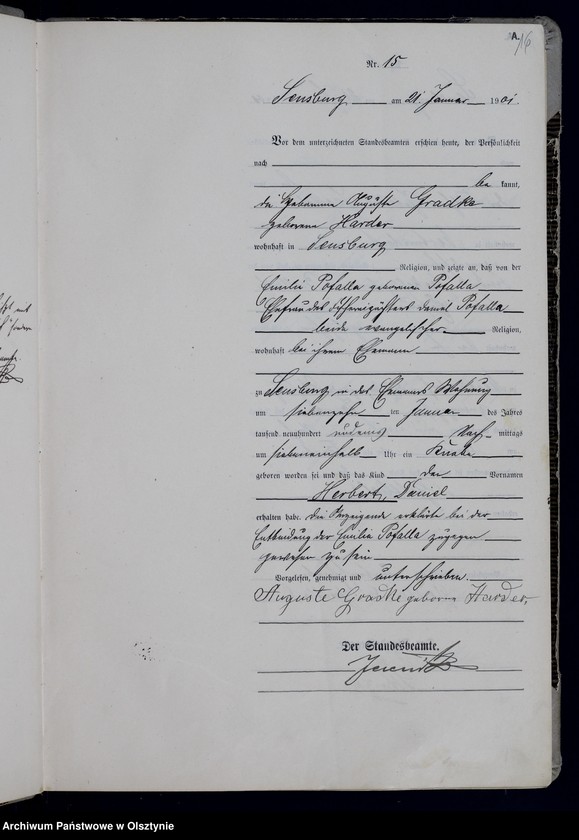 A.
16
Nr. 15
Sensburg am 21 Januar 1901.
Vor dem unterzeichneten Standesbeamten erschien heute, der Persönlichkeit
nach
be kannt,
die Hebamme Auguste Gradke
geborene Harder
wohnhaft in Sensburg
Religion, und zeigte an, daß von der
Emilie Pofalla geborenen Pofalla
Ehefrau des Daniel Pofalla
beide evangelischer Religion,
wohnhaft bei ihrem Ehemann
zu Sensburg in des Ehemanns Wohnung
am siebenzehn ten Januar des Jahres
tausend neunhundert und eins Nach- mittags
um siebeneinhalb Uhr ein Knabe
geboren worden sei und daß das Kind die Vornamen
Herbert, Daniel
erhalten habe. Die Anzeigende erklärte bei der
Entbindung der Emilie Pofalla zugegen
gewesen zu sein
Vorgelesen, genehmigt und unterschrieben.
Auguste Gradke geborne Harder,
Der Standesbeamte.
Archiwum Państwowe w Olsztynie